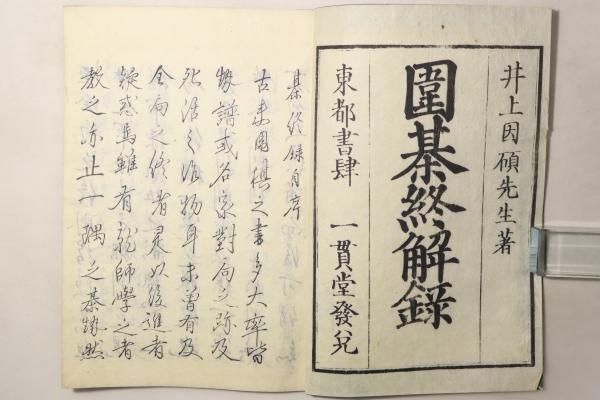 井上因碩先生著
圍棊終解録
東都書肆　一貫堂發兌
棊終録自序
古來圍棋之書多大率皆
勢譜或名家對局之跡及
死活之作物耳未曾有及
全局之終者是以後進者
疑惑焉雖有就師學之者
教之亦止一隅之棊勢然